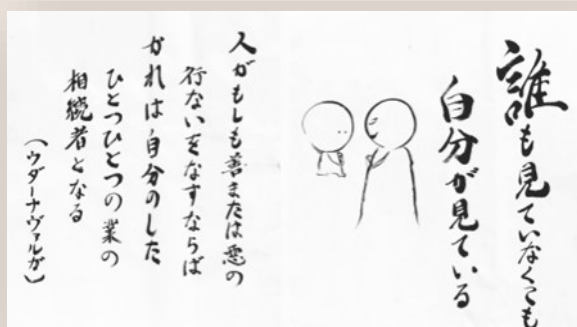 誰も見ていなくても
自分が見ている
人がもしも善または悪の
行ないをなすならば
かれは自分のした
ひとつひとつの業の
相続者となる
（ウダーナヴァルガ）